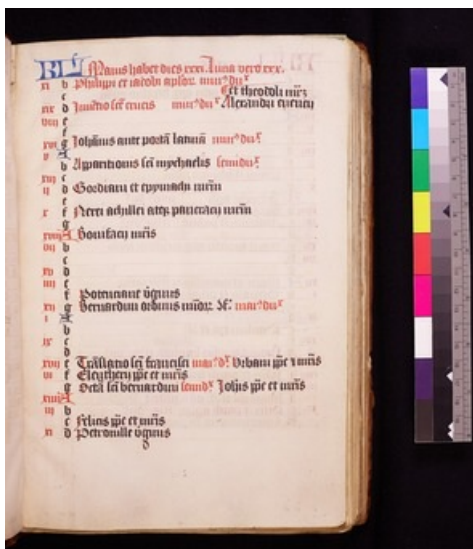 KL Maius habet dies xxxi. Luna vero xxx.
xi b Philippi et iacobi aplor. mai9 dux
c et theodoli mrz
xix d Inuētio scē crucis mai9 dux Alexandri euencij
viii e
f
xvi g Johānis ante portā latinā mai9 dux
v A
b Apparitionis sci mychaelis semidux
xiii c
ii d Gordiani et epymachi mrm
e
x f Nerei achillei atqz pancracij mrm
g
xviii A Bonifacij mris
vii b
c
xv d
iiii e
f Potenciane vginis
xii g Bernardini ordinis mai9 dux
i A
b
ix c
d
xvii e Trāslatio sci francisci mai9 d Urbani ppe et mris
vi f Eleutherij ppe et mris
g Octa sci bernardini semid Johis ppe et mris
xiiii A
iii b
c Felicis ppe et mris
xi d Petronille vginis